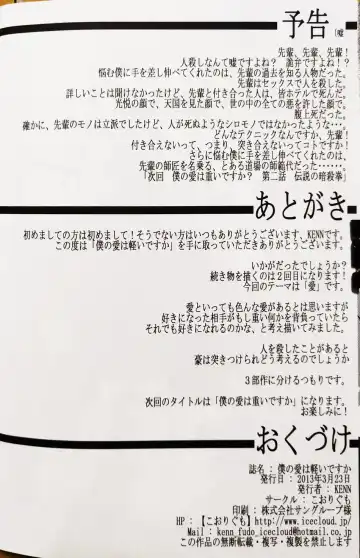 予告
先輩、先輩、先輩！
人殺しなんて嘘ですよね？　詭弁ですよね！？
悩む僕に手を差し伸べてくれたのは、先輩の過去を知る人物だった。
先輩はセックスで人を殺した。
詳しいことは聞けなかったけど、先輩と付き合った人は、皆ホテルで死んだ。
光悦の顔で、天国を見た顔で、世の中の全ての悪を許した顔で。
腹上死だった。
確かに、先輩のモノは立派でしたけど、人が死ぬようなシロモノではなかったような･･･。
どんなテクニックなんですか、先輩！
付き合えないって、つまり、突き合えないってコトですか！
さらに悩む僕に手を差し伸べてくれたのは、
先輩の師匠を名乗る、とある道場の師範代だった･･････。
「次回　僕の愛は重いですか？　第二話　伝説の暗殺拳」
あとがき
初めましての方は初めまして！そうでない方はいつもありがとうございます、KENNです。
この度は「僕の愛は軽いですか」を手に取っていただきありがとうございます。
いかがだったでしょうか？
続き物を描くのは２回目になります！
今回のテーマは「愛」です。
愛といっても色んな愛があるとは思いますが
好きになった相手がもし重い何かを背負っていたら
それでも好きになれるのかな、と考え描いてみました。
人を殺したことがあると
豪は突きつけられどう考えるのでしょうか
３部作に分けるつもりです。
次回のタイトルは「僕の愛は重いですか」になります。
お楽しみに！
おくづけ
誌名 : 僕の愛は軽いですか
発行日 : 2013年3月23日
発行者 : KENN
サークル : こおりぐも
印刷 : 株式会社サングループ様
HP : 【こおりぐも】http://www.icecloud.jp
Mail : kenn_fudo_icecloud@hotmail.co.jp
この作品の無断転載・複写・複製を禁止します